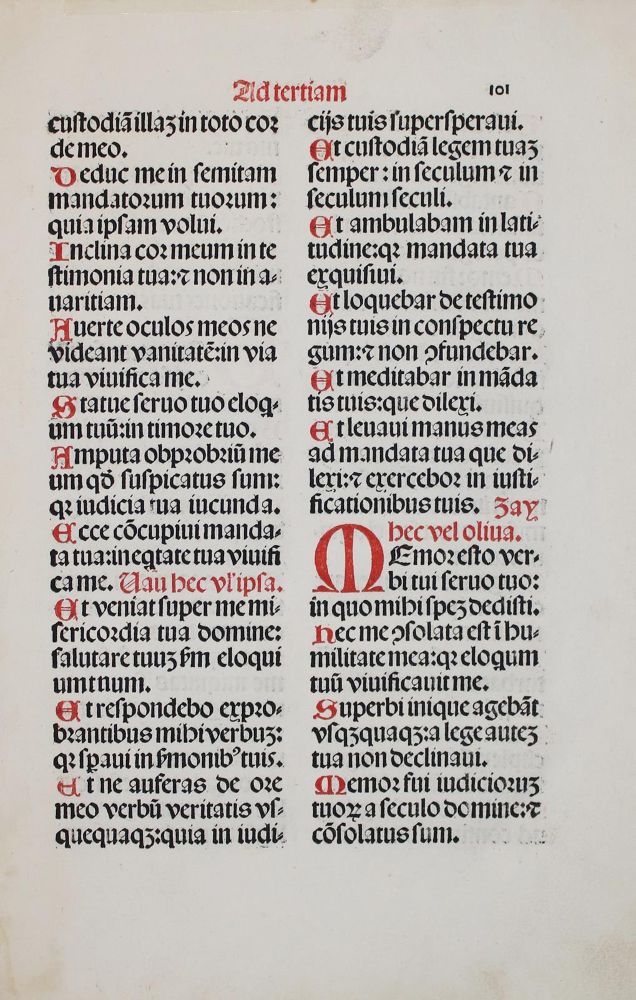 Ad tertiam
101
custodiā illaꝫ in toto cor
de meo.
Deduc me in semitam
mandatorum tuorum:
quia ipsam volui.
Inclina cor meum in te
stimonia tua:⁊ non in a-
uaritiam.
Auerte oculos meos ne
videant vanitatē:in via
tua viuifica me.
Statue seruo tuo eloq̄-
um tuū:in timore tuo.
Amputa obprobriū me
um qđ suspicatus sum:
qꝛ iudicia tua iucunda.
Ecce cōcupiui manda-
ta tua:in eq̄tate tua viuifi
ca me. Uau hec vl' ipsa.
Et veniat super me mi-
sericordia tua domine:
salutare tuuꝫ ẜm eloqui
um tuum.
Et respondebo expro-
brantibus mihi verbuꝫ:
qꝛ sꝑaui in ẜmonibꝰ tuis.
Et ne auferas de ore
meo verbū veritatis vs-
quequaqꝫ:quia in iudi-
cijs tuis supersperaui.
Et custodiā legem tuaꝫ
semper: in seculum ⁊ in
seculum seculi.
Et ambulabam in lati-
tudine:qꝛ mandata tua
exquisiui.
Et loquebar de testimo
nijs tuis in conspectu re
gum:⁊ non ꝯfundebar.
Et meditabar in māda
tis tuis:que dilexi.
Et leuaui manus meas
ad mandata tua que di-
lexi:⁊ exercebor in iusti-
ficationibus tuis. Zay
hec vel oliua.
MEmor esto ver-
bi tui seruo tuo:
in quo mihi speꝫ dedisti.
Hec me ꝯsolata est ī hu-
militate mea:qꝛ eloquium
tuū viuificauit me.
Superbi inique agebāt
vsqꝫquaqꝫ:a lege auteꝫ
tua non declinaui.
Memor fui iudicioruꝫ
tuoꝝ a seculo domine:⁊
cōsolatus sum.